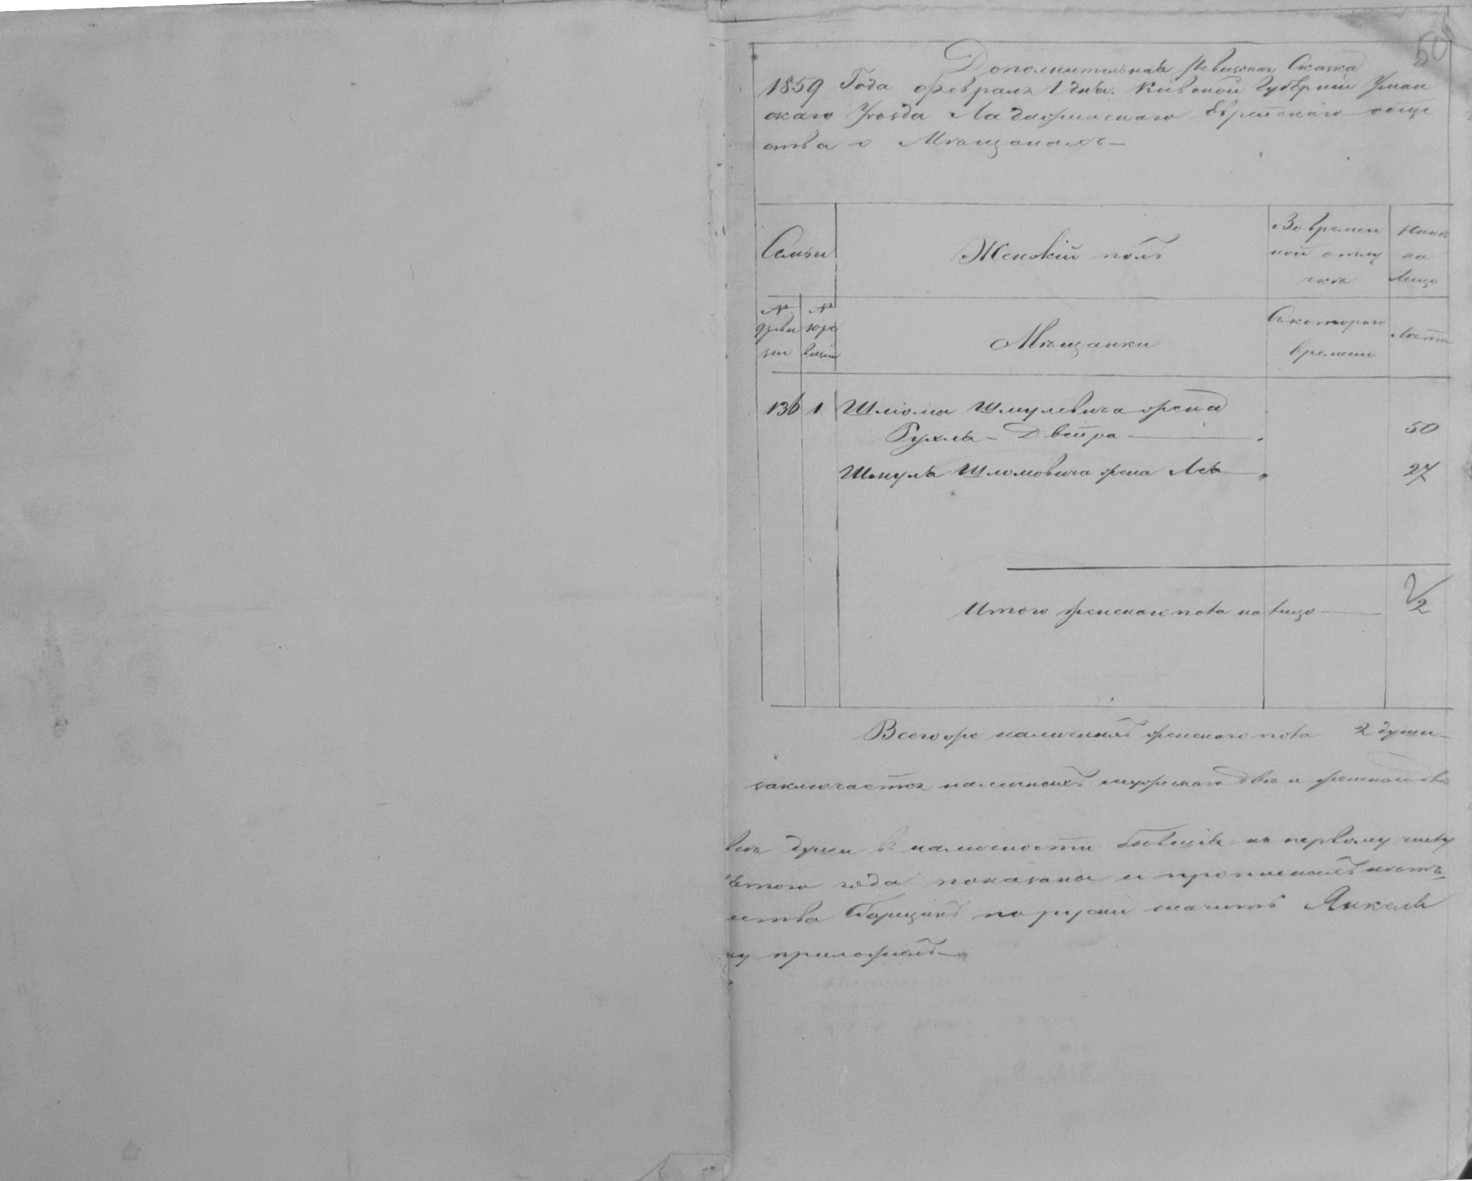 50
Дополнительная Ревизская Сказка
1859 Года февраля 1 дня. Киевской Губернии Уман
скаго Уезда Ладыжинскаго Еврейскаго обще
ства о Мещанахъ
Семьи
Женский полъ
Во времен
ной отлу
чке
Нали
на
Лицо
№ № 
Мещанки
Съ котораго
времени
Лета
136 1 Шліомы Шмулевича жена
Рухль-Двейра 50
Шмуля Шломовича жена Лея 27
Итого женскаго пола на лицо 2
Всего же наличныхъ женскаго пола 2 души
заключается наличныхъ мужескаго две и женскаго две
души в наличности къ первому числу
года показаны и прописныхъ нетъ
по руски значитъ Янкель
приложилъ